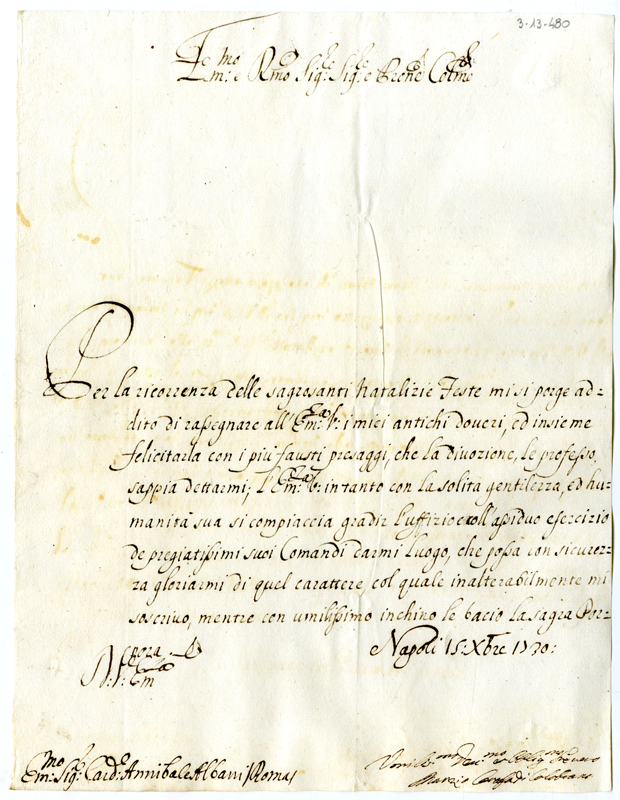 3-13-480
Em:mo e Rmo Sig:re Sig:re e Prone Colmo
Per la ricorrenza delle sagrosanti Natalizie Feste mi si porge ad=
dito di rassegnare all' Em:za V:ra i miei antichi doveri, ed insieme
felicitarla con i più fausti presaggi, che la divozione, le professo,
sappia dettarmi; l'Em:za V:ra intanto con la solita gentilezza, ed hu=
manità sua si compiaccia gradir l'uffizio e coll'assiduo esercizio
de pregiatissimi suoi Comandi darmi luogo, che possa con sicurez=
za gloriarmi di quel carattere, col quale inalterabilmente mi
soscrivo, mentre con umilissimo inchino le bacio la sagra Por=
pora.
Napoli 15: Xbre 1730:
D: V: Em:
Em:mo Sig:r Card:e Annibale Albani / Roma /